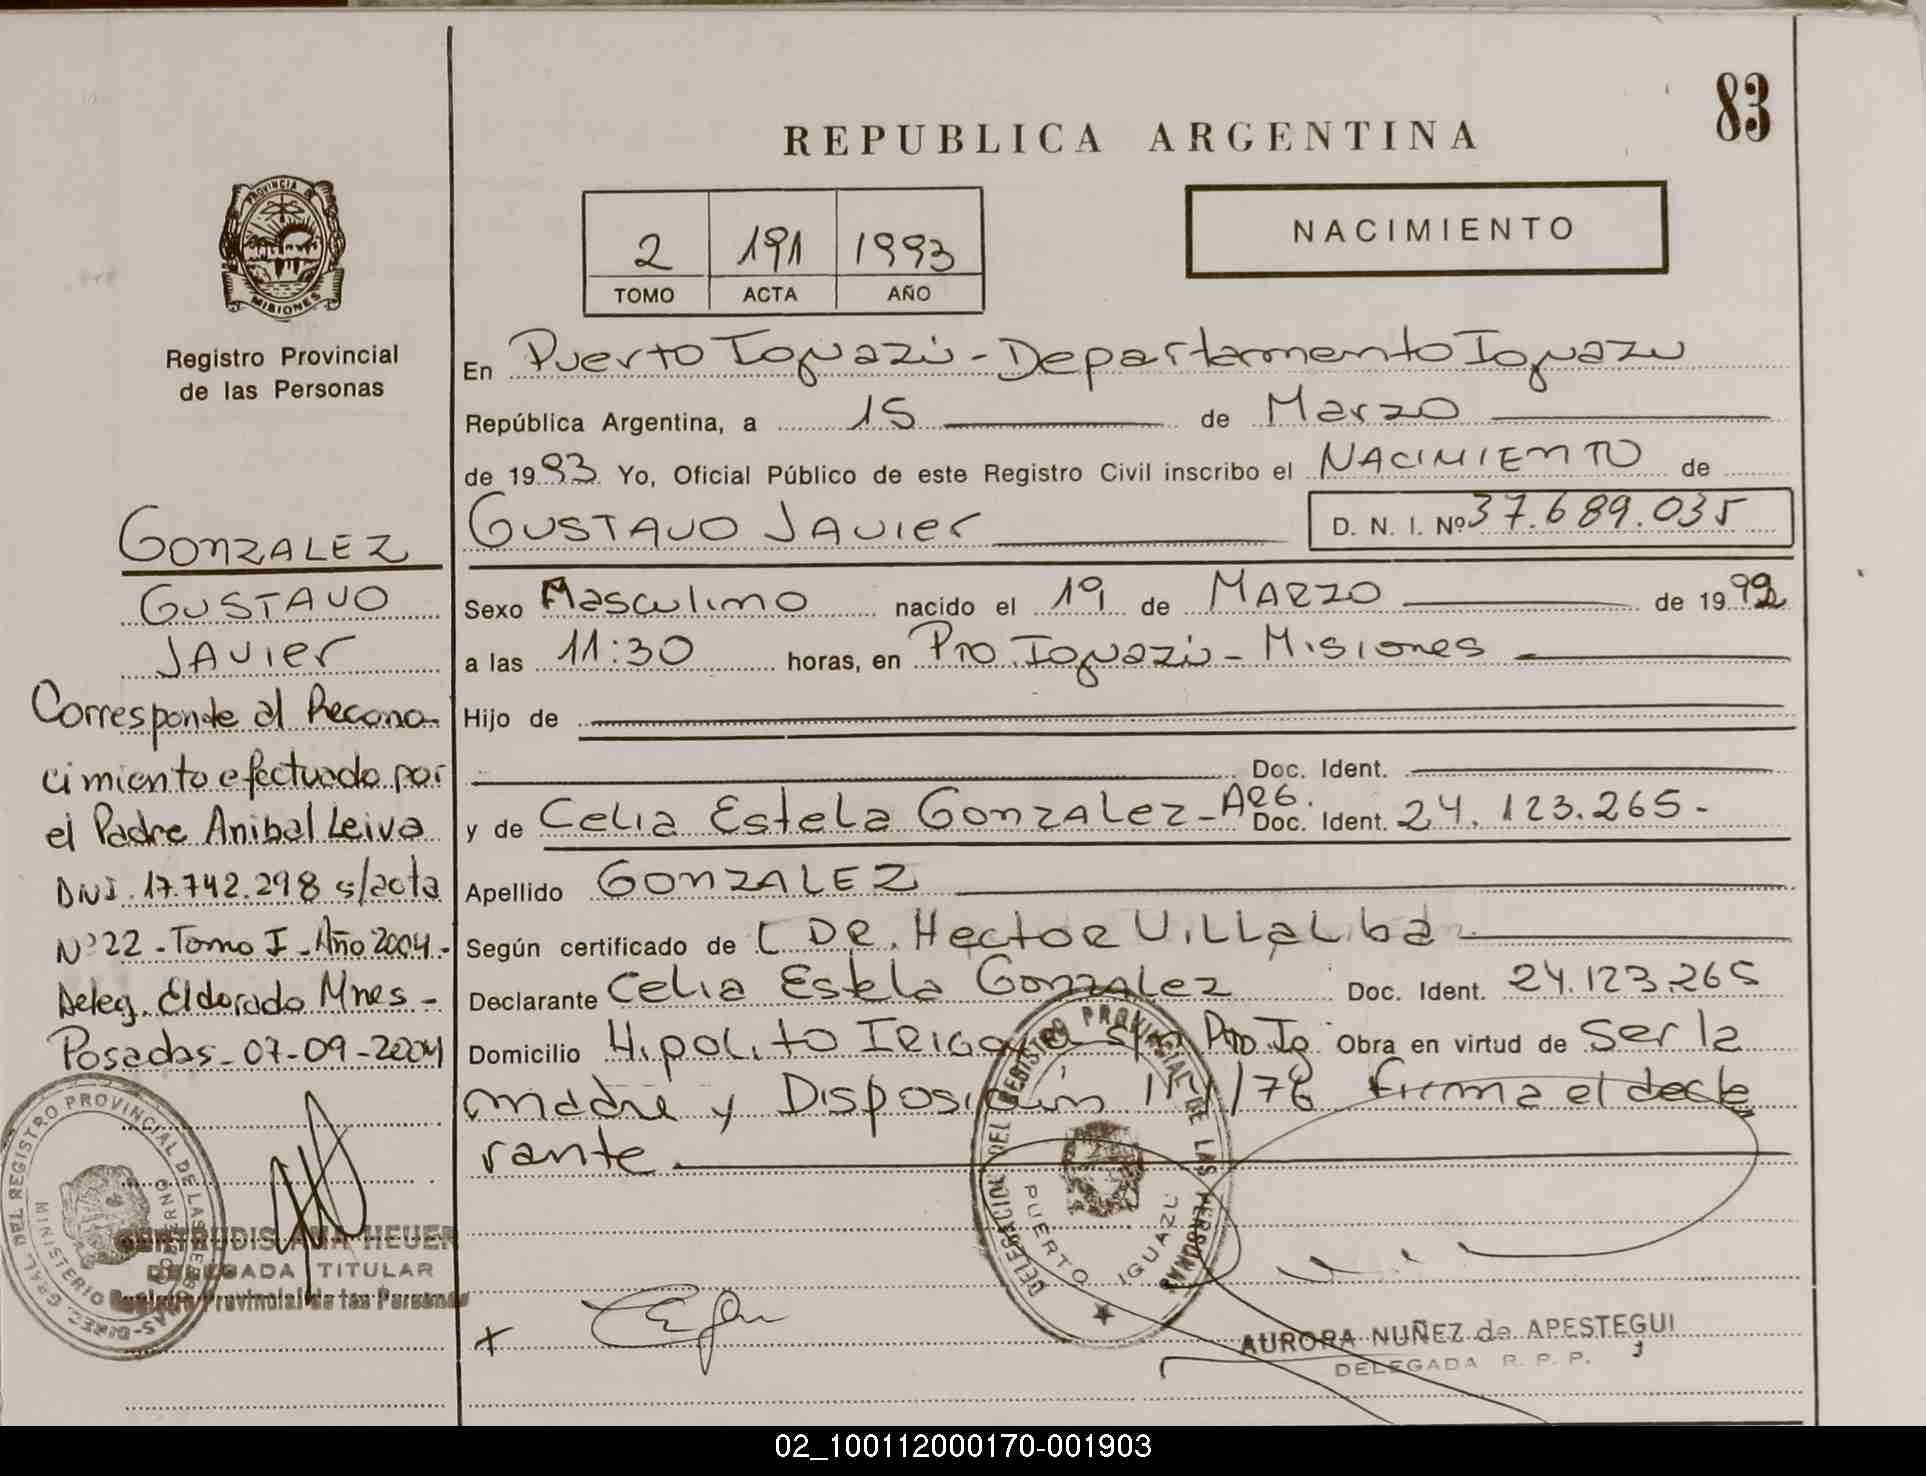 83
REPUBLICA ARGENTINA
PROVINCIA DE
MISIONES
Registro Provincial
de las Personas
NACIMIENTO
2 191 1993
TOMO ACTA AÑO
En Puerto Iguazú - Departamento Iguazu
República Argentina, a 15 de Marzo
de 1993 Yo, Oficial Público de este Registro Civil inscribo el NACIMIENTO de
GUSTAVO JAVIER D. N. I. Nº 37.689.035
Sexo Masculino nacido el 19 de MARZO de 1992
a las 11:30 horas, en Pto. Iguazú - Misiones
Hijo de
Doc. Ident.
y de Celia Estela Gonzalez - ARG. Doc. Ident. 24.123.265-
Apellido GONZALEZ
Según certificado de DR. Hector Villalba
Declarante Celia Estela Gonzalez Doc. Ident. 24.123.265
Domicilio Hipolito Irigoyen s/n Pto Ig. Obra en virtud de Ser la
madre y Disposición /76 firma el decla
rante
GONZALEZ
GUSTAVO
JAVIER
Corresponde al Recono
cimiento efectuado por
el Padre Anibal Leiva
DNI. 17.742.298 s/acta
Nº 22 - Tomo I - Año 2004.-
Deleg. Eldorado Mnes -
Posadas - 07-09-2004
DIREC. GRAL. DEL REGISTRO PROVINCIAL DE LAS PERSONAS
MINISTERIO GOBIERNO
GERTRUDIS ANA HEUER
DELEGADA TITULAR
Registro Provincial de las Personas
DELEGACION DEL REGISTRO PROVINCIAL DE LAS PERSONAS
PUERTO IGUAZU
AURORA NUÑEZ de APESTEGUI
DELEGADA R. P. P.
02_100112000170-001903